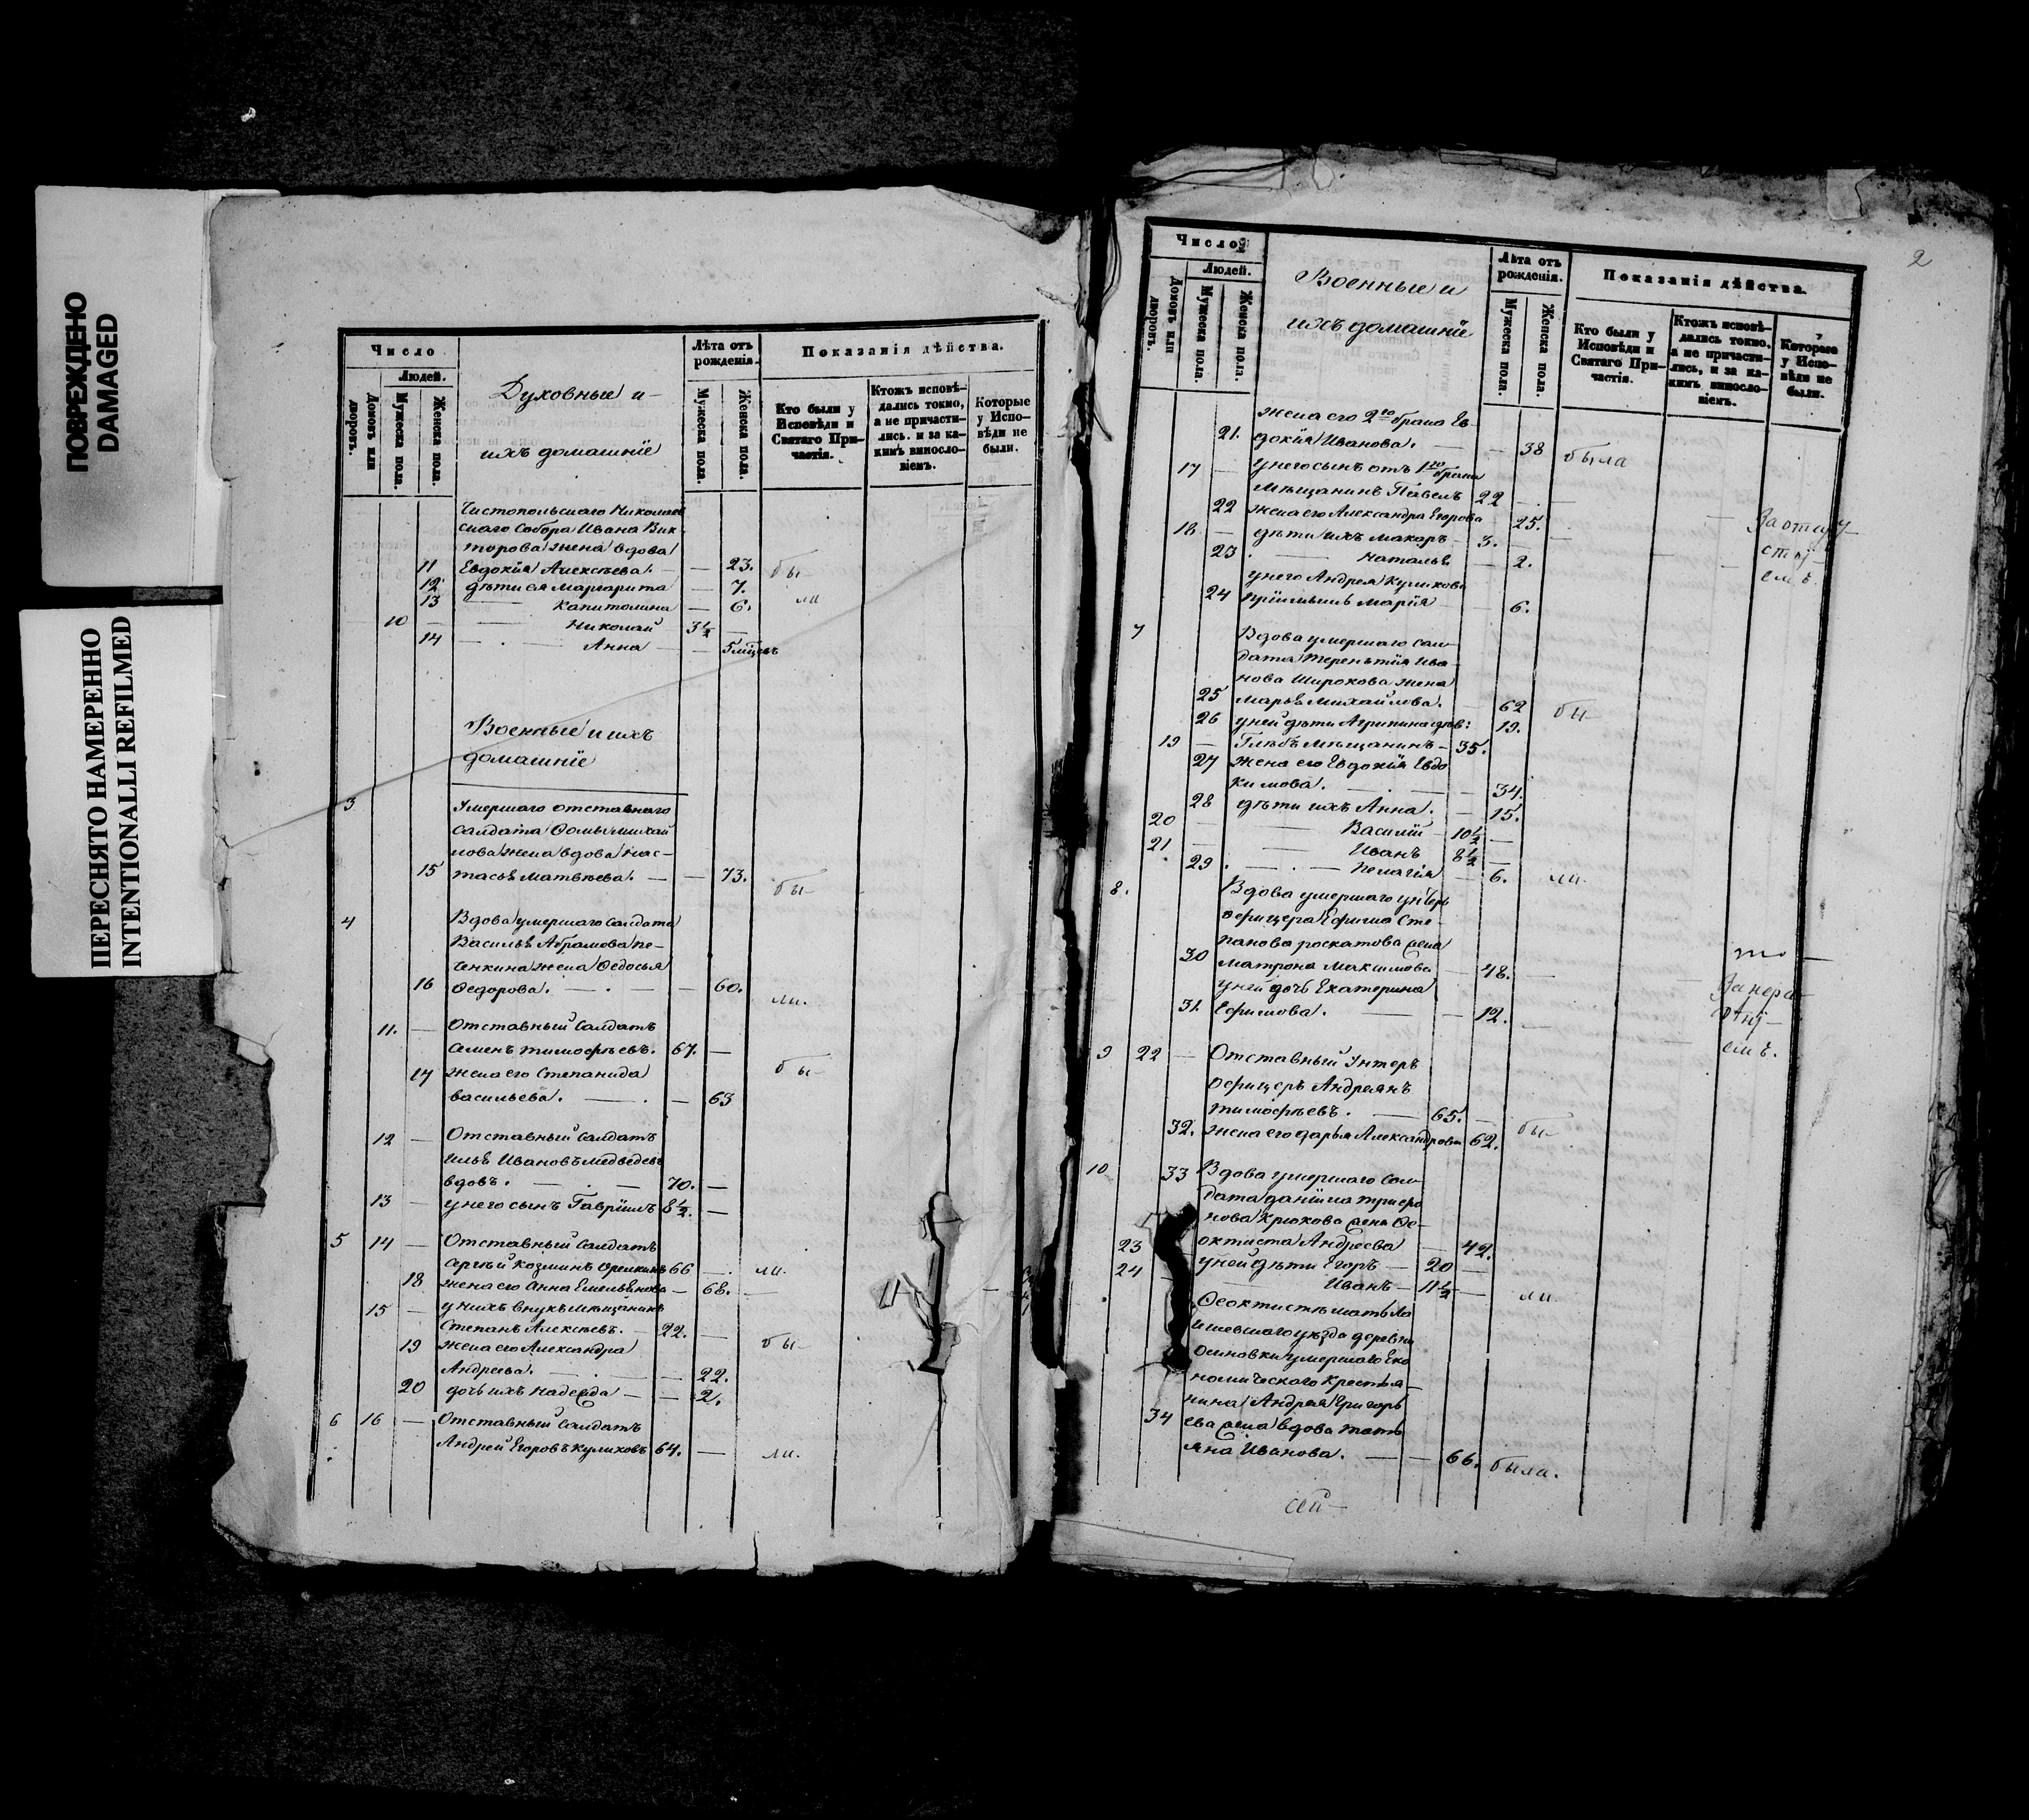 ПОВРЕЖДЕНО
DAMAGED
ПЕРЕСНЯТО НАМЕРЕННО
INTENTIONALLI REFILMED
Число
Людей.
Домовъ или дворовъ.
Мужеска пола.
Женска пола.
Духовные и
ихъ домашніе
Лѣта отъ рожденія.
Мужеска пола.
Женска пола.
Показанія дѣйства.
Кто были у Исповѣди и Святаго Причастія.
Ктожъ исповѣдались токмо, а не причастились. и за какимъ винословіемъ.
Которые у Исповѣди не были.
Чистопольскаго Николаев
скаго Собора Ивана Вик
торова жена вдова
11 Евдокія Алексѣева. — 23. бы
12 дѣти ея Маргарита — 7.
13 — Капитолина — 6. ли
10 — Николай 3½ —
14 — Анна — 5 мѣцовъ
Военные и ихъ
домашніе
3 Умершаго отставнаго
салдата Фомы Михай
лова жена вдова Нас-
15 тасья Матвѣева. — 73. бы-
4 Вдова умершаго салдата
Василья Абрамова Пе-
ченкина жена Федосья
16 Федорова. — 60. ли.
11. — Отставный Салдатъ
Семенъ Тимофѣевъ. 67. —
17 жена его Степанида бы-
Васильева. — 63
12 — Отставный Салдатъ
Илья Ивановъ Медведевъ
вдовъ. — 70. —
13 — у него сынъ Гавріилъ 8½. —
5 14 — Отставный Салдатъ
Сергѣй Козминъ Орешкинъ 66 — ли.
18 жена его Анна Емельянова — 68.
15 — у нихъ внукъ мѣщанинъ
Степанъ Алексѣевъ. 22. —
19 жена его Александра бы-
Андреева. — 22.
20 дочь ихъ Надежда — 2.
6 16 — Отставный Салдатъ
Андрей Егоровъ Куликовъ 64. — ли.
2
Число
Людей.
Домовъ или дворовъ.
Мужеска пола.
Женска пола.
Военные и
ихъ домашніе
Лѣта отъ рожденія.
Мужеска пола.
Женска пола.
Показанія дѣйства.
Кто были у Исповѣди и Святаго Причастія.
Ктожъ исповѣдались токмо, а не причастились, и за какимъ винословіемъ.
Которые у Исповѣди не были.
жена его 2го брака Ев-
21. докія Иванова. — 38 была
17 — у него сынъ отъ 1го брака
мѣщанинъ Павелъ 22 —
22 жена его Александра Егорова 25. За отлу-
18 — дѣти ихъ Макаръ 3. — 
23 — Наталья — 2.
у него Андрея Куликова
24 Марія — 6.
7 Вдова умершаго сал-
дата Терентія Ива-
нова Широкова жена
25 Марья Михайлова. 62 бы-
26 у ней дѣти Агрипина дѣв: 19.
19 — Глѣбъ мѣщанинъ — 35.
27 жена его Евдокія Евдо
кимова. — 34.
28 дѣти ихъ Анна. — 15.
20 — Василій 10½ —
21 — Иванъ 8½ —
29 — Пелагія — 6. ли.
8. Вдова умершаго унтеръ
офицера Ефима Сте-
панова жена
30 Матрона Максимова — 48. —
у ней дочь Екатерина
31. Ефимова. — 12.
9 22 — Отставный Унтеръ
офицеръ Андреянъ
Тимофѣевъ. — 65. —
32. жена его Дарья Александрова 62. бы-
10 33 Вдова умершаго сал-
дата Даніила Трифо
нова Крюкова жена Фе-
октиста Андреева — 42.
23 у ней дѣти Егоръ — 20 —
24 — Иванъ — 11½ — ли
Феоктистѣ мать Ла
ишевскаго уѣзда деревни
Осиновки умершаго Еко
номическаго крестья-
нина Андрея Григорь
34 ева жена вдова Тать
яна Иванова. — 66. была.